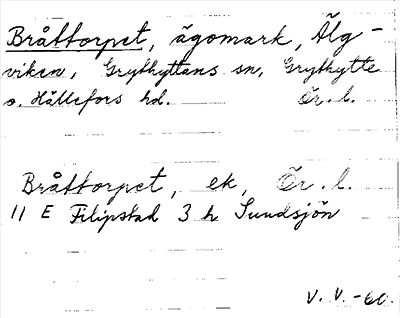 Bråttorpet, ägomark, Älg-
viken, Grythyttans sn, Grythytte
o. Hällefors hd. Ör. l.
Bråttorpet, ek, Ör. l.
11 E Filipstad 3 h Sundsjön
V. V. -60.